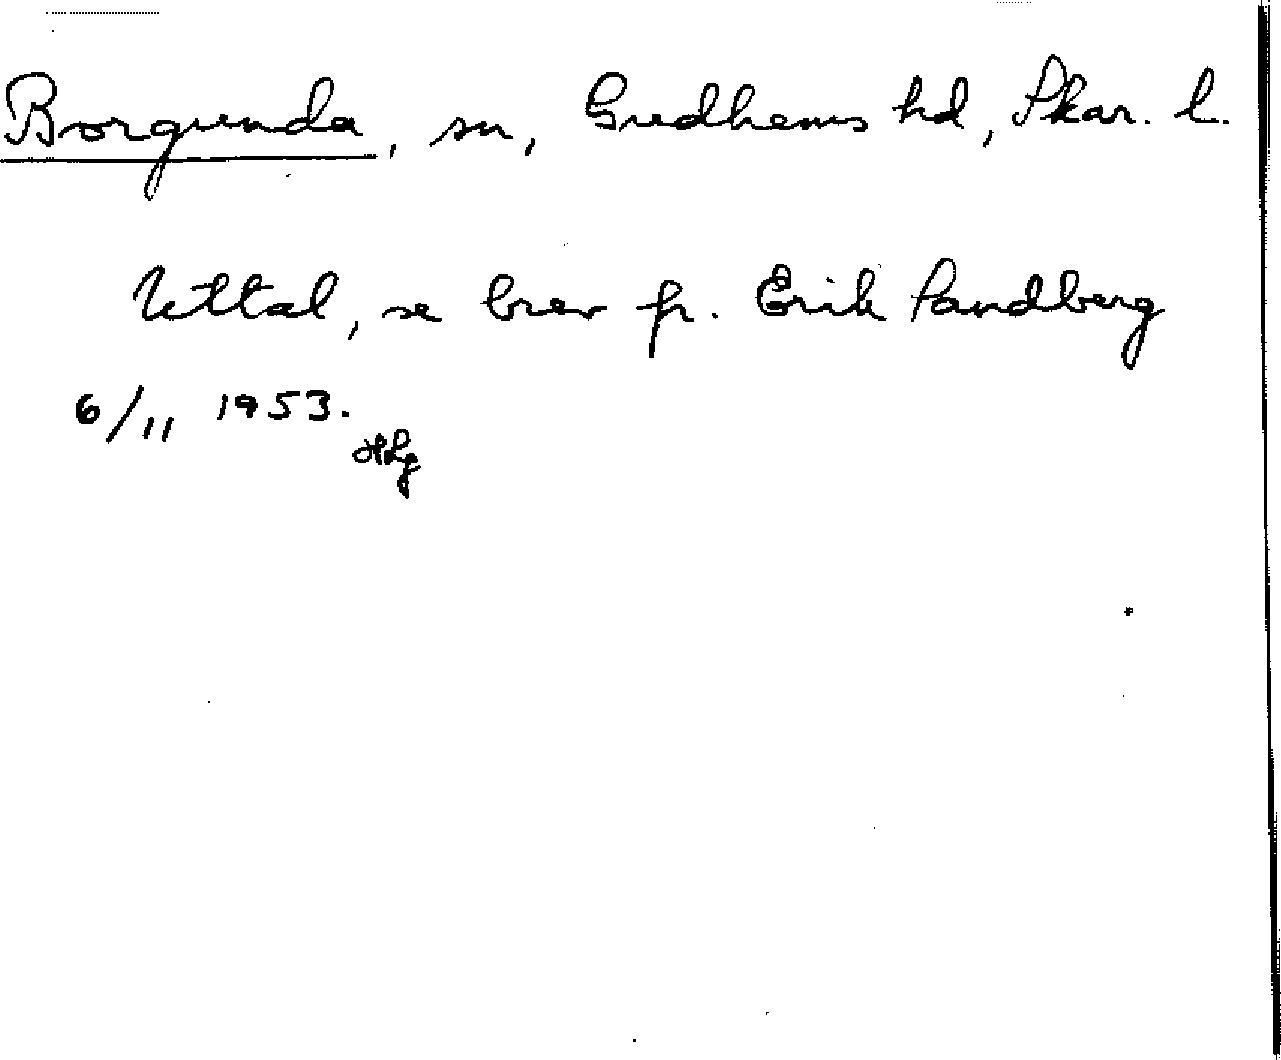 Borgunda, sn, Gudhems hd, Skar. l.
Uttal, se brev fr. Erik Sandberg
6/11 1953.